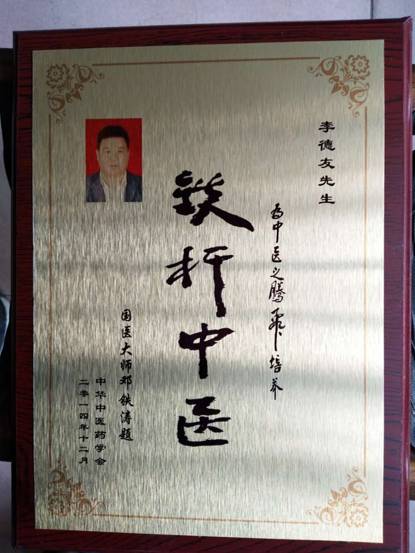 李德友先生
为中医之腾飞培养
铁杆中医
国医大师邓铁涛题
中华中医药学会
二零一四年十二月